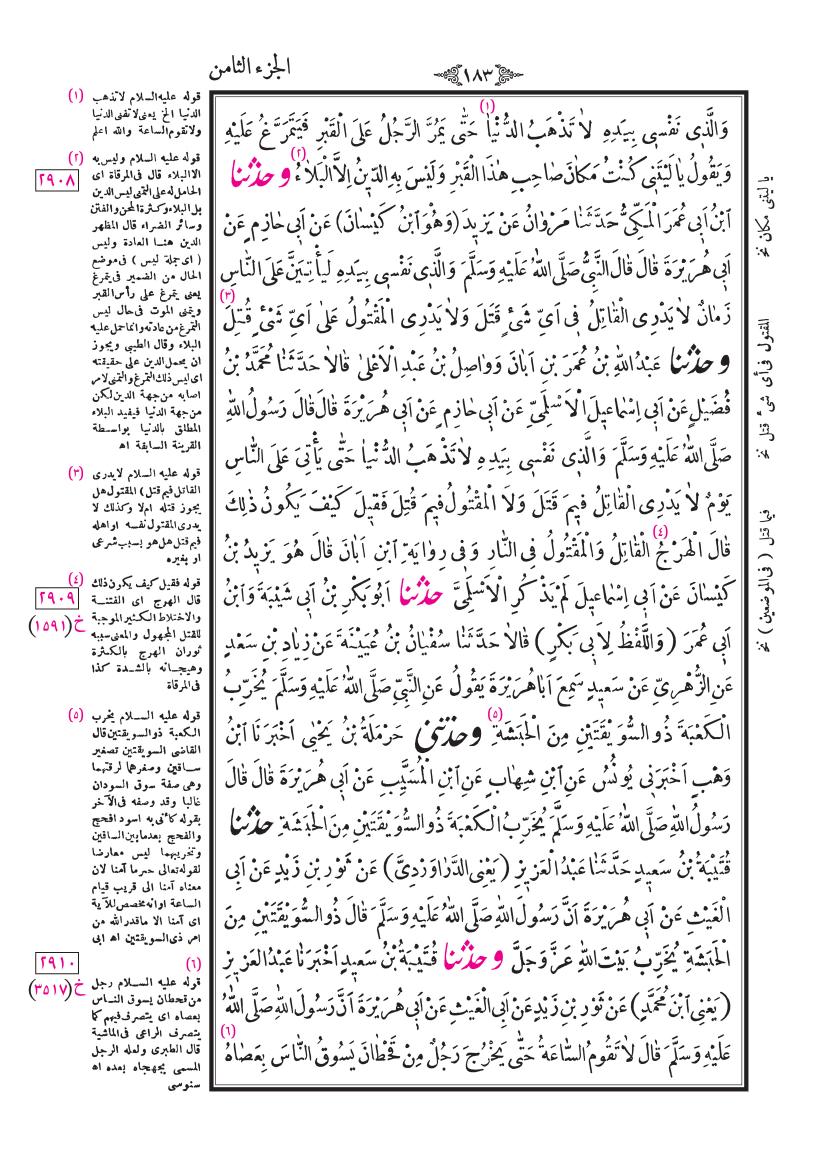 الجزء الثامن
١٨٣
وَالَّذِى نَفْسِى بِيَدِهِ لَا تَذْهَبُ الدُّنْيَا (١) حَتَّى يَمُرَّ الرَّجُلُ عَلَى الْقَبْرِ فَيَتَمَرَّغُ عَلَيْهِ
وَيَقُولُ يَا لَيْتَنِى كُنْتُ مَكَانَ صَاحِبِ هٰذَا الْقَبْرِ وَلَيْسَ بِهِ الدِّينُ اِلَّا الْبَلَاءُ (٢) وحدثنا
ابْنُ اَبِى عُمَرَ الْمَكِّىُّ حَدَّثَنَا مَرْوَانُ عَنْ يَزِيدَ (وَهُوَ ابْنُ كَيْسَانَ) عَنْ اَبِى حَازِمٍ عَنْ
اَبِى هُرَيْرَةَ قَالَ قَالَ النَّبِىُّ صَلَّى اللهُ عَلَيْهِ وَسَلَّمَ وَالَّذِى نَفْسِى بِيَدِهِ لَيَأْتِيَنَّ عَلَى النَّاسِ
زَمَانٌ لَا يَدْرِى الْقَاتِلُ فِى اَىِّ شَىْءٍ قَتَلَ وَلَا يَدْرِى الْمَقْتُولُ عَلَى اَىِّ شَىْءٍ قُتِلَ (٣)
وحدثنا عَبْدُ اللهِ بْنُ عُمَرَ بْنِ اَبَانَ وَوَاصِلُ بْنُ عَبْدِ الْاَعْلَى قَالَا حَدَّثَنَا مُحَمَّدُ بْنُ
فُضَيْلٍ عَنْ اَبِى اِسْمَاعِيلَ الْاَسْلَمِىِّ عَنْ اَبِى حَازِمٍ عَنْ اَبِى هُرَيْرَةَ قَالَ قَالَ رَسُولُ اللهِ
صَلَّى اللهُ عَلَيْهِ وَسَلَّمَ وَالَّذِى نَفْسِى بِيَدِهِ لَا تَذْهَبُ الدُّنْيَا حَتَّى يَأْتِىَ عَلَى النَّاسِ
يَوْمٌ لَا يَدْرِى الْقَاتِلُ فِيمَ قَتَلَ وَلَا الْمَقْتُولُ فِيمَ قُتِلَ فَقِيلَ كَيْفَ يَكُونُ ذٰلِكَ
قَالَ الْهَرْجُ (٤) الْقَاتِلُ وَالْمَقْتُولُ فِى النَّارِ وَفِى رِوَايَةِ ابْنِ اَبَانَ قَالَ هُوَ يَزِيدُ بْنُ
كَيْسَانَ عَنْ اَبِى اِسْمَاعِيلَ لَمْ يَذْكُرِ الْاَسْلَمِىَّ حدثنا اَبُو بَكْرِ بْنُ اَبِى شَيْبَةَ وَابْنُ
اَبِى عُمَرَ (وَاللَّفْظُ لِاَبِى بَكْرٍ) قَالَا حَدَّثَنَا سُفْيَانُ بْنُ عُيَيْنَةَ عَنْ زِيَادِ بْنِ سَعْدٍ
عَنِ الزُّهْرِىِّ عَنْ سَعِيدٍ سَمِعَ اَبَا هُرَيْرَةَ يَقُولُ عَنِ النَّبِىِّ صَلَّى اللهُ عَلَيْهِ وَسَلَّمَ يُخَرِّبُ
الْكَعْبَةَ ذُو السُّوَيْقَتَيْنِ مِنَ الْحَبَشَةِ (٥) وحدثنى حَرْمَلَةُ بْنُ يَحْيَى اَخْبَرَنَا ابْنُ
وَهْبٍ اَخْبَرَنِى يُونُسُ عَنِ ابْنِ شِهَابٍ عَنِ ابْنِ الْمُسَيَّبِ عَنْ اَبِى هُرَيْرَةَ قَالَ قَالَ
رَسُولُ اللهِ صَلَّى اللهُ عَلَيْهِ وَسَلَّمَ يُخَرِّبُ الْكَعْبَةَ ذُو السُّوَيْقَتَيْنِ مِنَ الْحَبَشَةِ حدثنا
قُتَيْبَةُ بْنُ سَعِيدٍ حَدَّثَنَا عَبْدُ الْعَزِيزِ (يَعْنِى الدَّرَاوَرْدِىَّ) عَنْ ثَوْرِ بْنِ زَيْدٍ عَنْ اَبِى
الْغَيْثِ عَنْ اَبِى هُرَيْرَةَ اَنَّ رَسُولَ اللهِ صَلَّى اللهُ عَلَيْهِ وَسَلَّمَ قَالَ ذُو السُّوَيْقَتَيْنِ مِنَ
الْحَبَشَةِ يُخَرِّبُ بَيْتَ اللهِ عَزَّ وَجَلَّ وحدثنا قُتَيْبَةُ بْنُ سَعِيدٍ اَخْبَرَنَا عَبْدُ الْعَزِيزِ
(يَعْنِى ابْنَ مُحَمَّدٍ) عَنْ ثَوْرِ بْنِ زَيْدٍ عَنْ اَبِى الْغَيْثِ عَنْ اَبِى هُرَيْرَةَ اَنَّ رَسُولَ اللهِ صَلَّى اللهُ
عَلَيْهِ وَسَلَّمَ قَالَ لَا تَقُومُ السَّاعَةُ حَتَّى يَخْرُجَ رَجُلٌ مِنْ قَحْطَانَ يَسُوقُ النَّاسَ بِعَصَاهُ (٦)
يا ليتنى مكان نخ
المقتول فى أى شئ قتل نخ
فيما قتل (فى الموضعين) نخ
(١) قوله عليه السلام لا تذهب
الدنيا الخ يعنى لا تفنى الدنيا
ولا تقوم الساعة والله اعلم
(٢) قوله عليه السلام وليس به
الا البلاء قال فى المرقاة اى
الحامل له على التمنى ليس الدين
بل البلاء وكثرة المحن والفتن
وسائر الضراء قال المظهر
الدين هنا العادة وليس
(اى جملة ليس) فى موضع
الحال من الضمير فى يتمرغ
يعنى يتمرغ على رأس القبر
ويتمنى الموت فى حال ليس
التمرغ من عادته وانما حمل عليه
البلاء وقال الطيبى ويجوز
ان يحمل الدين على حقيقته
اى ليس ذلك التمرغ والتمنى لامر
اصابه من جهة الدين لكن
من جهة الدنيا فيفيد البلاء
المطلق بالدنيا بواسطة
القرينة السابقة اه
(٣) قوله عليه السلام لا يدرى
القاتل فيم قتل) المقتول هل
يجوز قتله ام لا وكذلك لا
يدرى المقتول نفسه او اهله
فيم قتل هل هو بسبب شرعى
او بغيره
(٤) قوله فقيل كيف يكون ذلك
قال الهرج اى الفتنة
والاختلاط الكثير الموجبة
للقتل المجهول والمعنى سببه
ثوران الهرج بالكثرة
وهيجانه بالشدة كذا
فى المرقاة
(٥) قوله عليه السلام يخرب
الكعبة ذو السويقتين قال
القاضى السويقتين تصغير
ساقين وصغرهما لرقتهما
وهى صفة سوق السودان
غالبا وقد وصفه فى الآخر
بقوله كأنى به اسود افحج
والفحج بعد مابين الساقين
وتخريبهما ليس معارضا
لقوله تعالى حرما آمنا لان
معناه آمنا الى قريب قيام
الساعة او انه مخصص للآية
اى آمنا الا ما قدر الله من
امر ذى السويقتين اه ابى
(٦) قوله عليه السلام رجل
من قحطان يسوق الناس
بعصاه اى يتصرف فيهم كما
يتصرف الراعى فى الماشية
قال الطبرى ولعله الرجل
المسمى بجهجاه بعده اه
سنوسى
٢٩٠٨
٢٩٠٩
خ (١٥٩١)
٢٩١٠
خ (٣٥١٧)